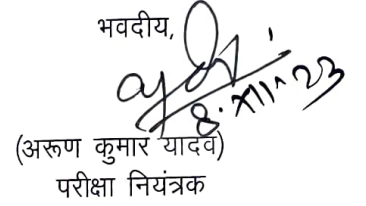 भवदीय,
8.XII.23
(अरूण कुमार यादव)
परीक्षा नियंत्रक